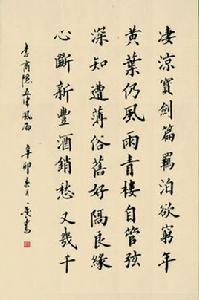 凄涼寶劍篇羇泊欲窮年
黃葉仍風雨青樓自管弦
深知遭薄俗舊好隔良緣
心斷新豐酒銷愁又幾千
李商隱五律風雨 辛卯春月